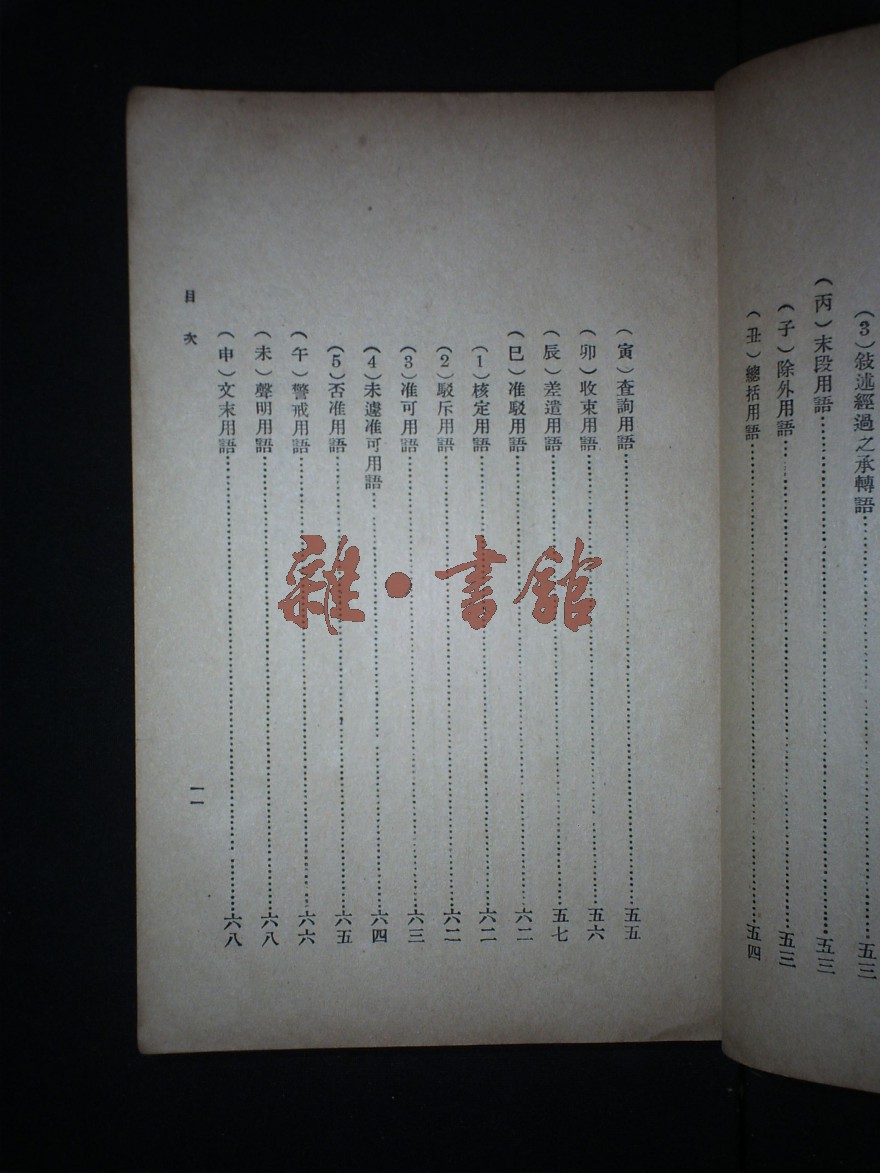 (3)敍述經過之承轉語……五三
(丙)末段用語……五三
(子)除外用語……五三
(丑)總括用語……五四
(寅)查詢用語……五五
(卯)收束用語……五六
(辰)差遣用語……五七
(巳)准駁用語……六二
(1)核定用語……六二
(2)駁斥用語……六二
(3)准可用語……六三
(4)未遽准可用語……六四
(5)否准用語……六五
(午)警戒用語……六六
(未)聲明用語……六八
(申)文末用語……六八
目次
一一
雜·書館